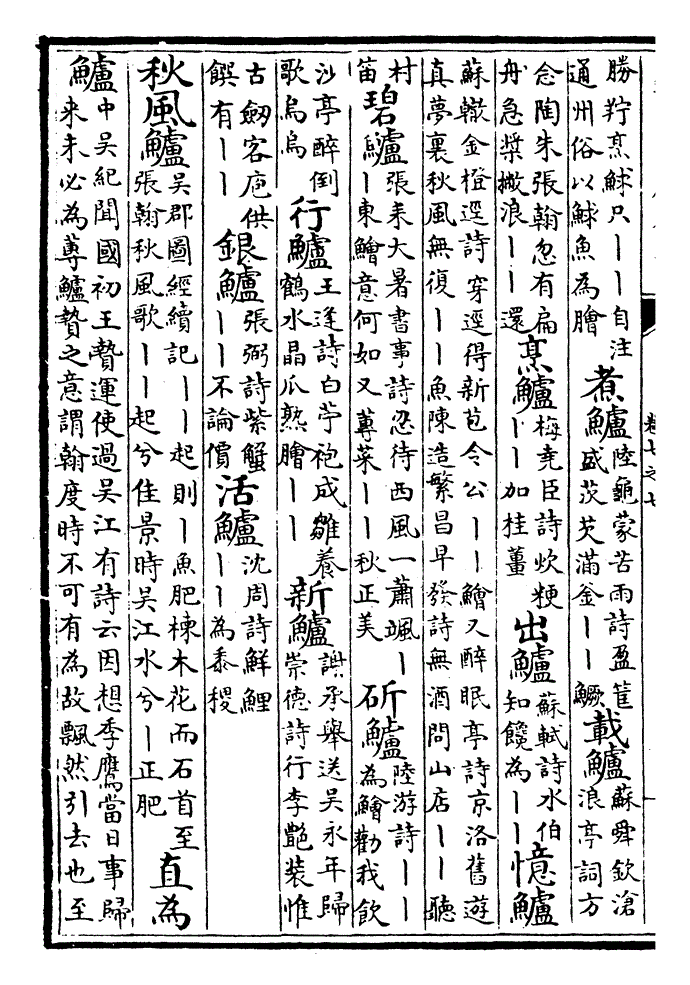 勝貯烹鯄只丨丨自注
通州俗以鯄魚為膾
煮鱸
陸龜蒙苦雨詩盈筐
盛茨芡滿釜丨丨鱖
載鱸
蘇舜欽滄
浪亭詞方
念陶朱張翰忽有扁
舟急槳撇浪丨丨還
烹鱸
梅堯臣詩炊粳
丨丨加桂薑
出鱸
蘇軾詩水伯
知饞為丨丨
憶鱸
蘇轍金橙逕詩穿逕得新苞令公丨丨鱠又醉眠亭詩京洛舊遊
真夢裏秋風無復丨丨魚陳造繁昌早發詩無酒問山店丨丨聽
村
笛
碧鱸
張耒大暑書事詩忍待西風一蕭颯丨
丨東鱠意何如又蓴菜丨丨秋正美
斫鱸
陸游詩丨丨
為鱠勸我飲
沙亭醉倒
歌烏烏
行鱸
王逢詩白苧袍成雛養
鶴水晶瓜熟膾丨丨
新鱸
謝承舉送吳永年歸
崇德詩行李艷裝惟
古劔客庖供
饌有丨丨
銀鱸
張弼詩紫蟹
丨丨不論價
活鱸
沈周詩鮮鯉
丨丨為黍稷
秋風鱸
吳郡圖經續記丨丨起則丨魚肥楝木花而石首至
張翰秋風歌丨丨起兮佳景時吳江水兮丨正肥
直為
鱸
中吳紀聞國初王贄運使過吳江有詩云因想季鷹當日事歸
來未必為蓴鱸贄之意謂翰度時不可有為故飄然引去也至
卷七之七